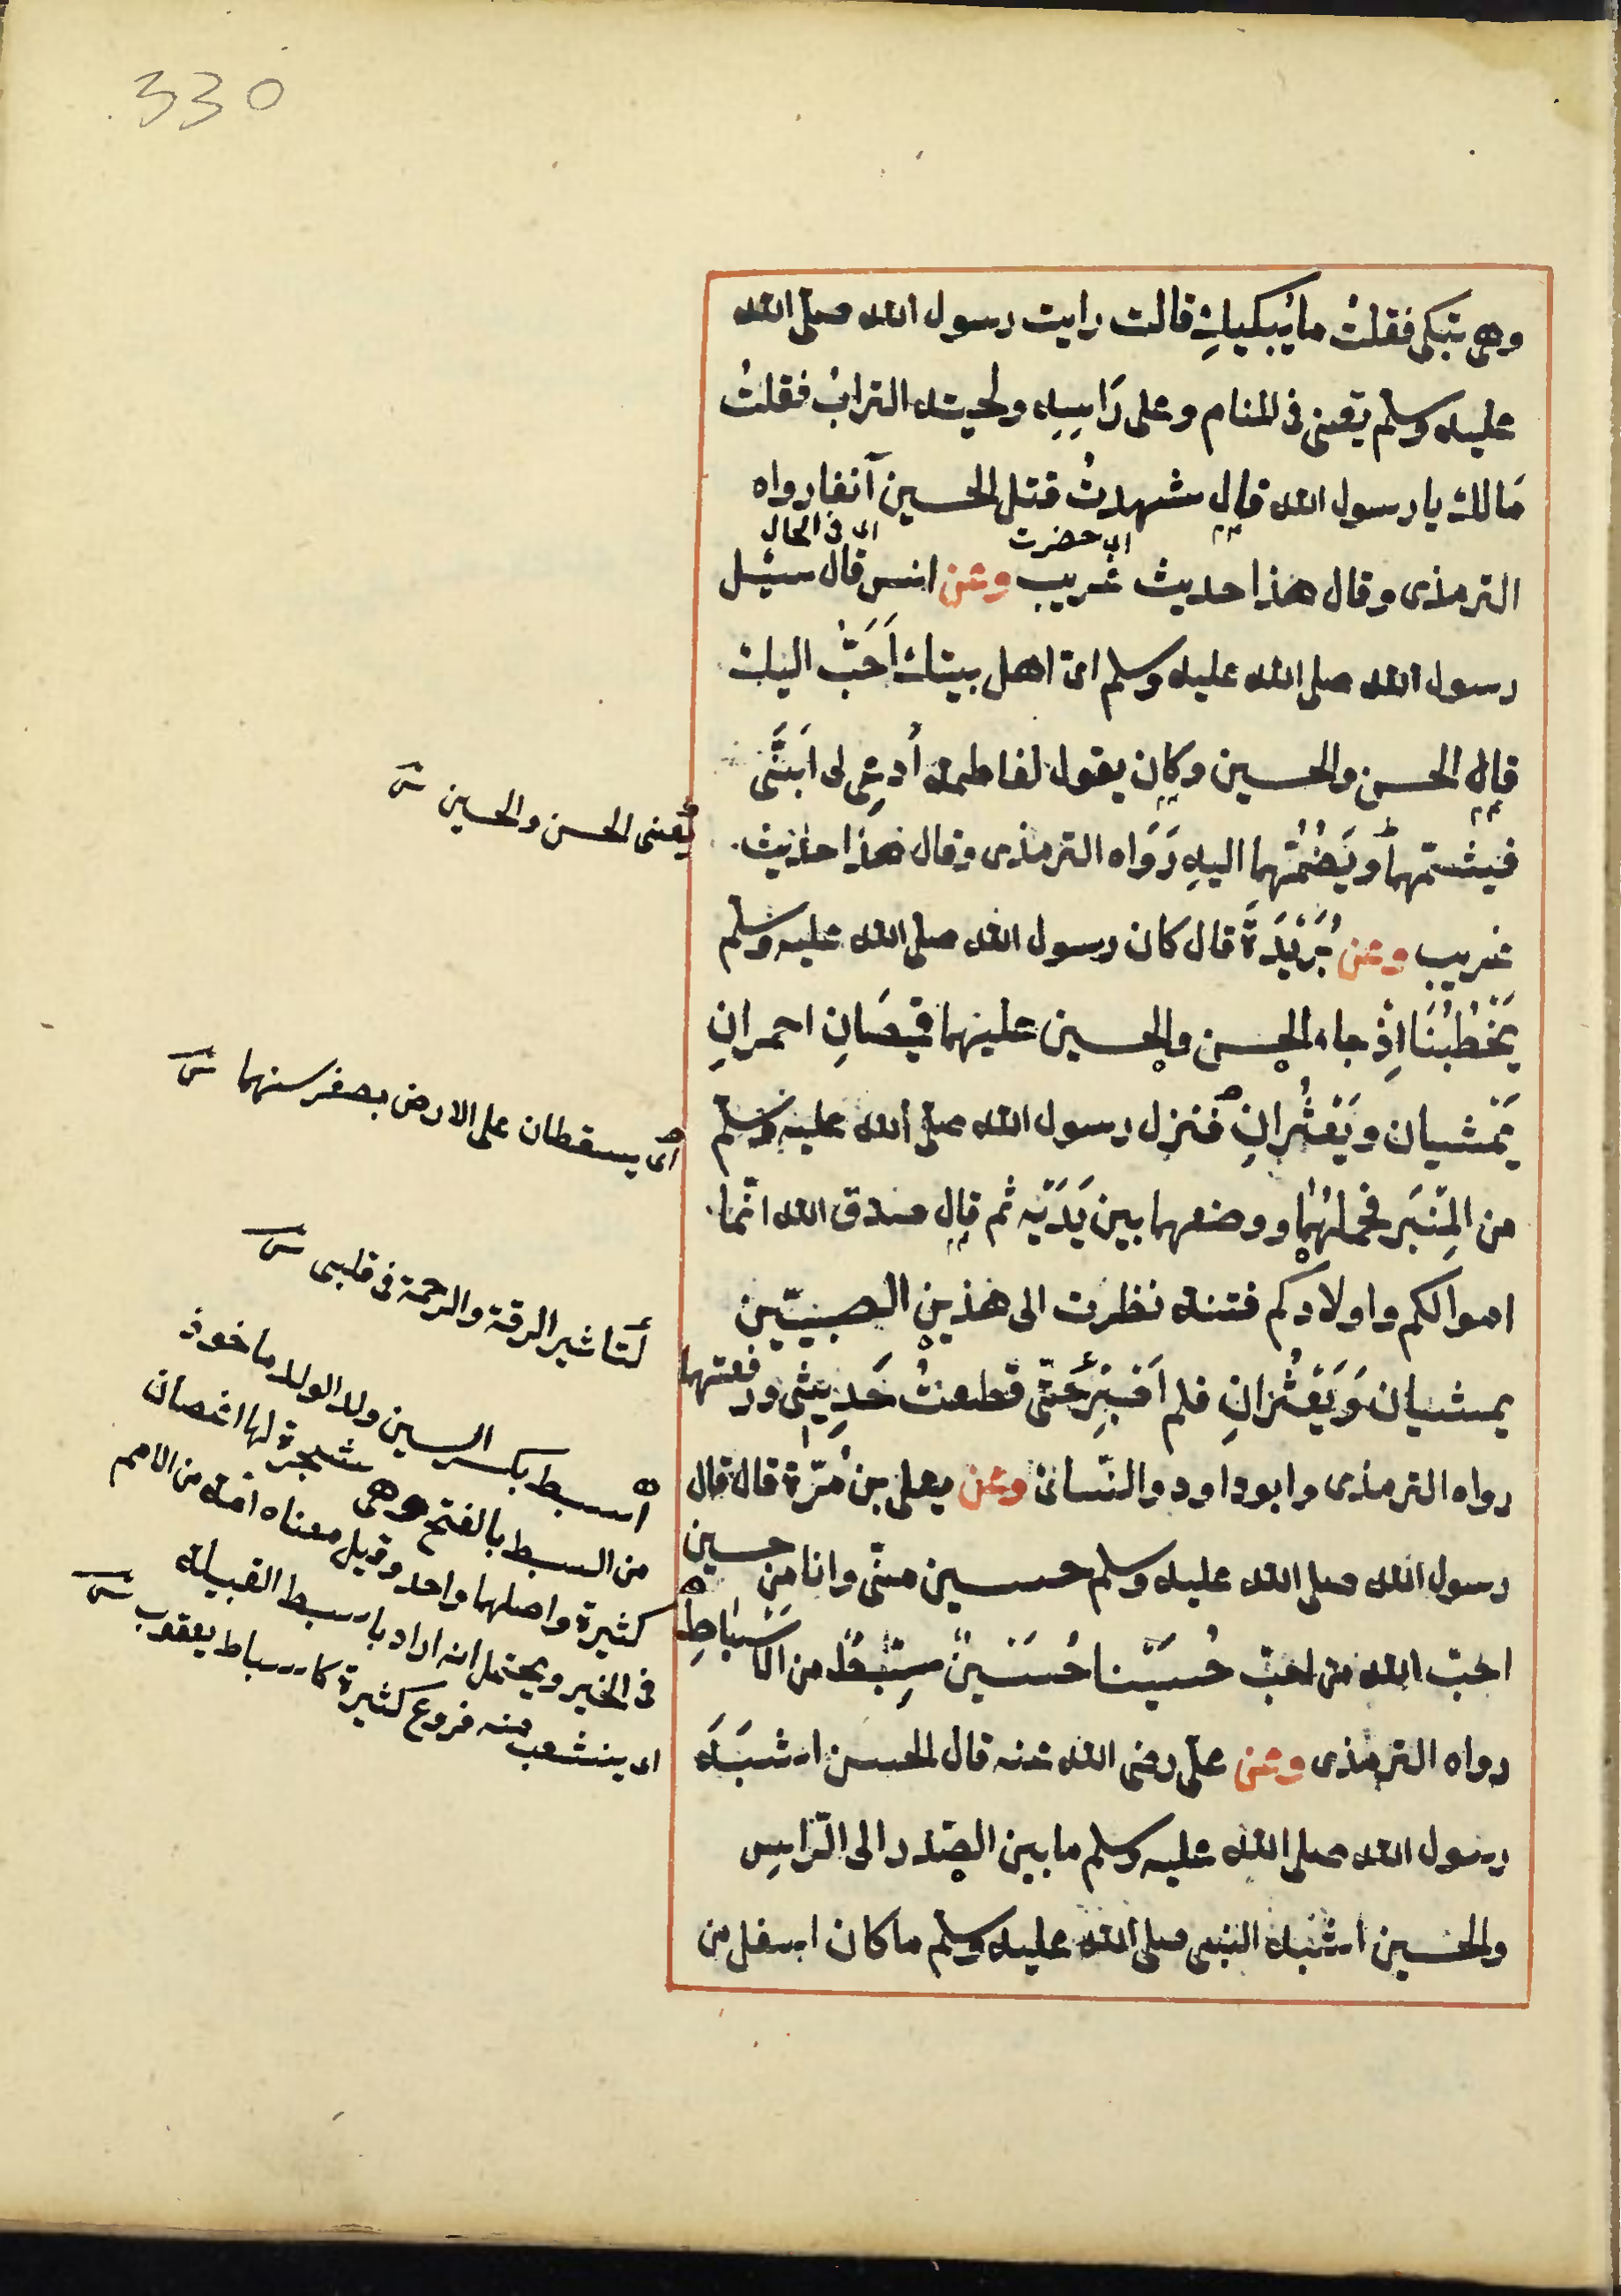 330
وهى تبكى فقلتُ ما يُبكيكِ قالت رايت رسول الله صلى الله
عليه وسلم تعنى فى المنام وعلى رَاسِهِ ولحيته الترابُ فقلتُ
مَالك يا رسول الله قال شهدتُ قتل الحسين آنفا رواه
اى حضرت
اى فى الحال
الترمذى وقال هذا حديث غريب وعن انس قال سئل
رسول الله صلى الله عليه وسلم اىّ اهل بيتك اَحَبُّ اليك
قال الحسن والحسين وكان يقول لفاطمة اُدعِى لى ابنَىَّ
فيشمّهما ويَضُمُّهما اليهِ رَوَاه الترمذى وقال هذا حديث
غريب وعن بُرَيْدَةَ قال كان رسول الله صلى الله عليه وسلم
يَخْطُبُنَا اِذْ جاء الحسن والحسين عليهما قميصَانِ احمرانِ
يَمْشيان ويَعْثُرانِ فنزل رسول الله صلى الله عليه وسلم
من المِنْبَر فحملهُمَا ووضعهما بين يَدَيْه ثم قال صدق الله انّما
اموالكم واولادكم فتنة نظرت الى هذين الصبيّين
يمشيان وَيَعْثُرانِ فلم اَصْبِرْ حَتّى قطعتُ حَدِيثى ورفعتهما
رواه الترمذى وابوداود والنّسائى وعن يعلى بن مُرّة قال قال
رسول الله صلى الله عليه وسلم حسين منّى وانا مِن حسين
احبّ الله من احبّ حُسَيْنا حُسَيْنٌ سِبْطٌ من الاَسْبَاطِ
رواه الترمذى وعن علىّ رضى الله عنه قال الحسن اشبَهَ
رسول الله صلى الله عليه وسلم ما بين الصّدر الى الرّاسِ
والحسين اشبه النبى صلى الله عليه وسلم ما كان اسفل من
يعنى الحسن والحسين
اى يسقطان على الارض بصغر سنهما
لتاثير الرقة والرحمة فى قلبى
السبط بكسر السين ولد الولد ماخوذ
من السبط بالفتح وهى شجرة لها اغصان
كثيرة واصلها واحد وقيل معناه امة من الامم
فى الخير ويحتمل انه اراد بالسبط القبيلة
اى ينشعب منه فروع كثيرة كاسباط يعقوب